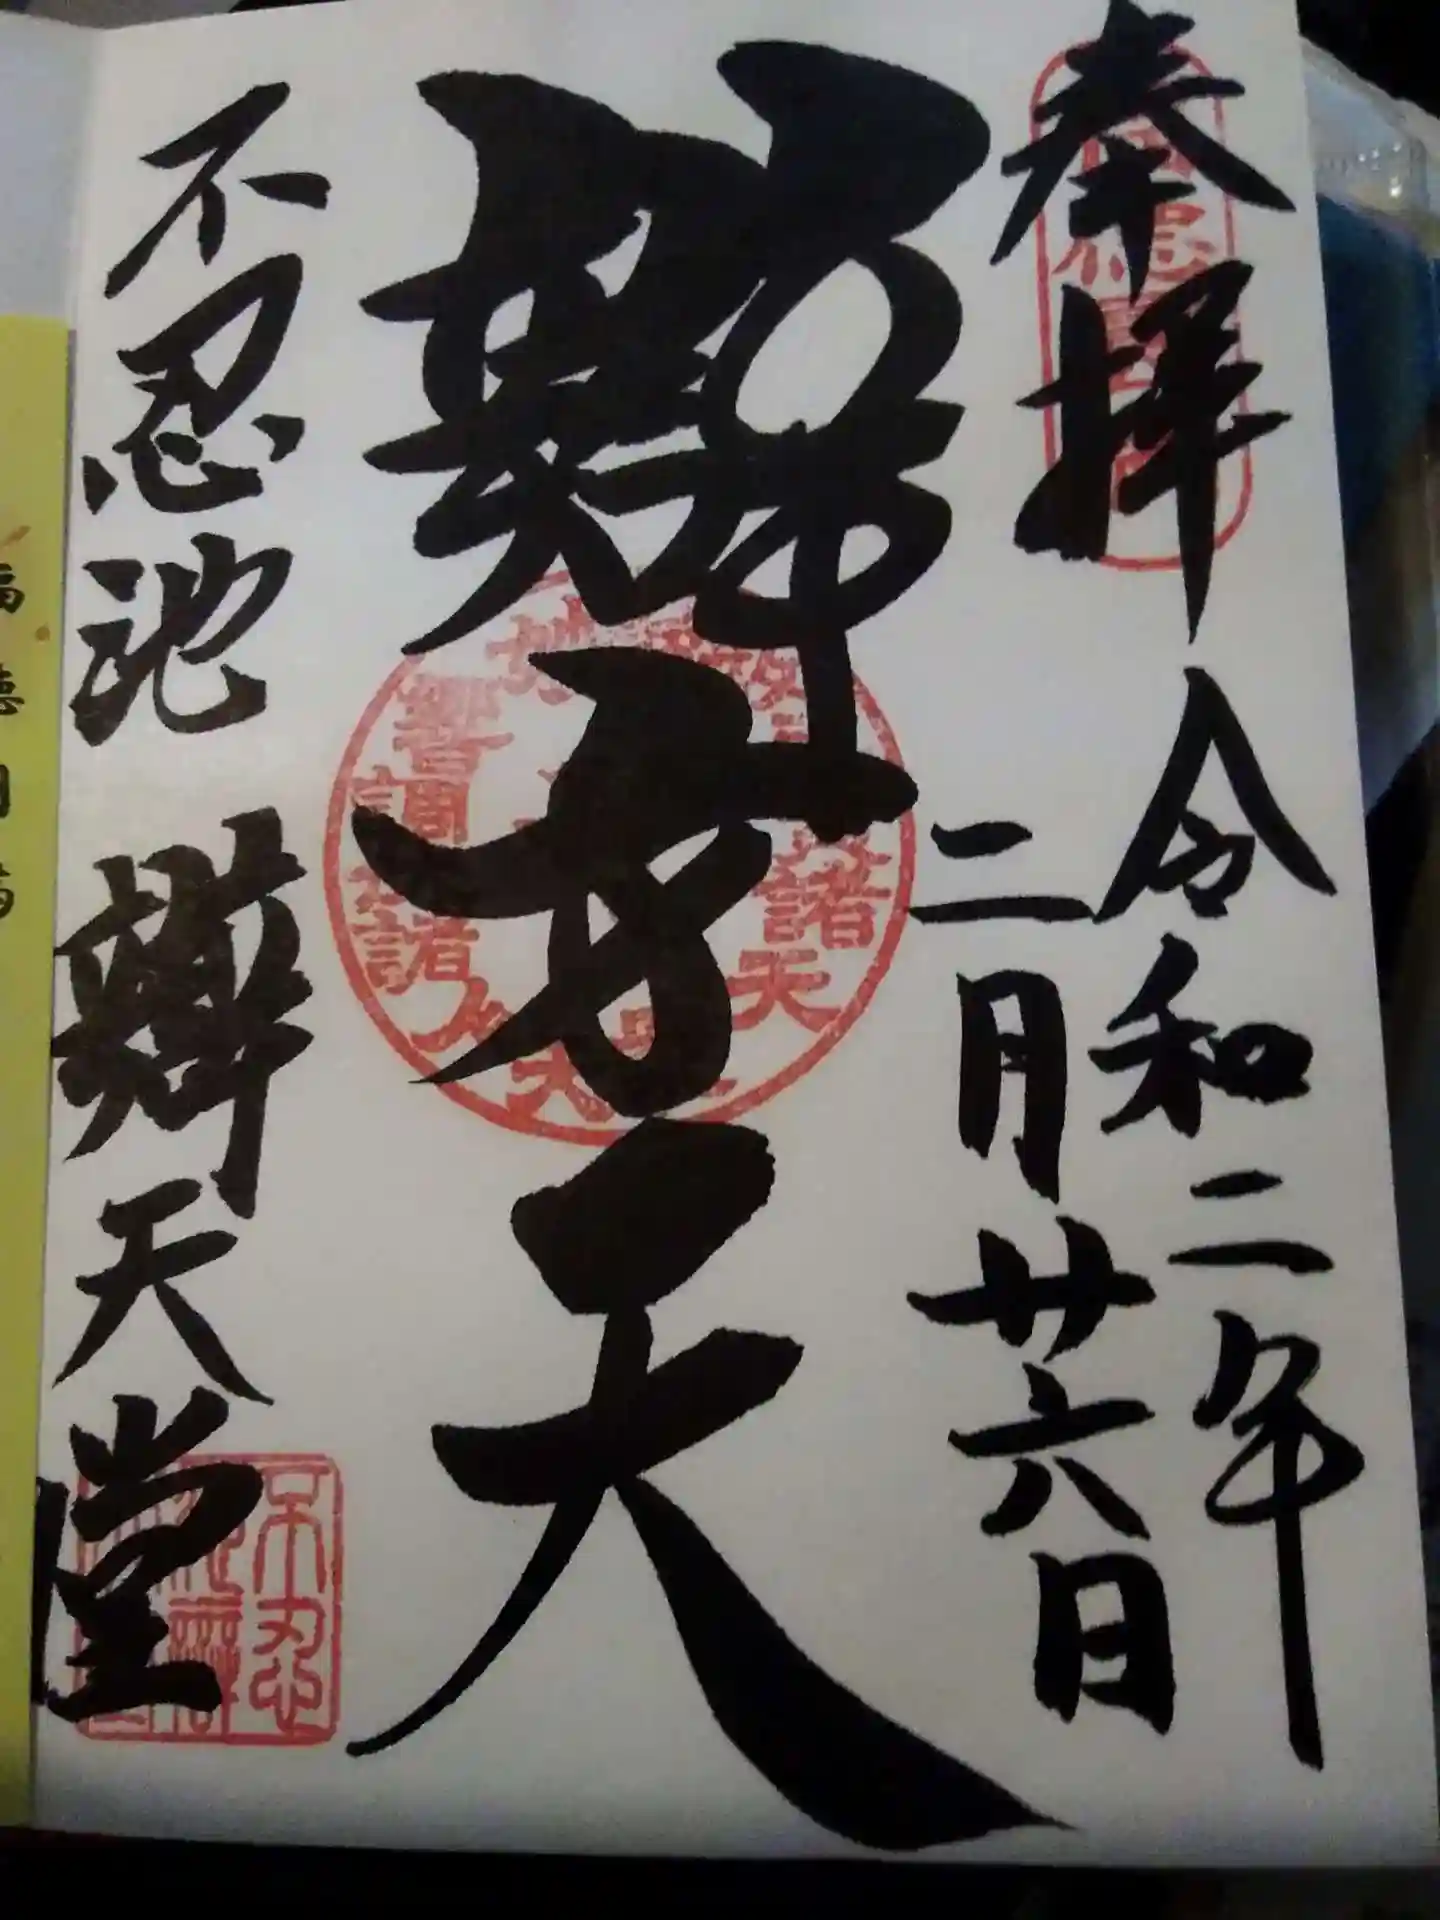 奉拝
令和二年
二月廿六日
辯才天
不忍池 辯天堂